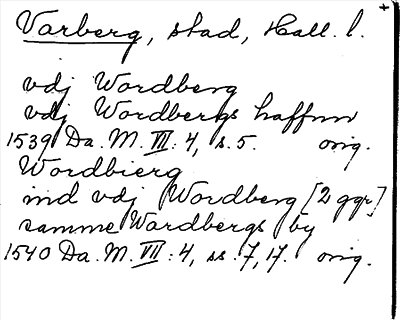 Varberg, stad, Hall. l. +
vdj Wordberg
vdj Wordbergs haffnn
1539 Da. M. VII: 4, s. 5. orig.
Wordbierg
ind vdj Wordberg [2 ggr]
samme Wordbergs by
1540 Da. M. VII: 4, ss. 7, 17. orig.